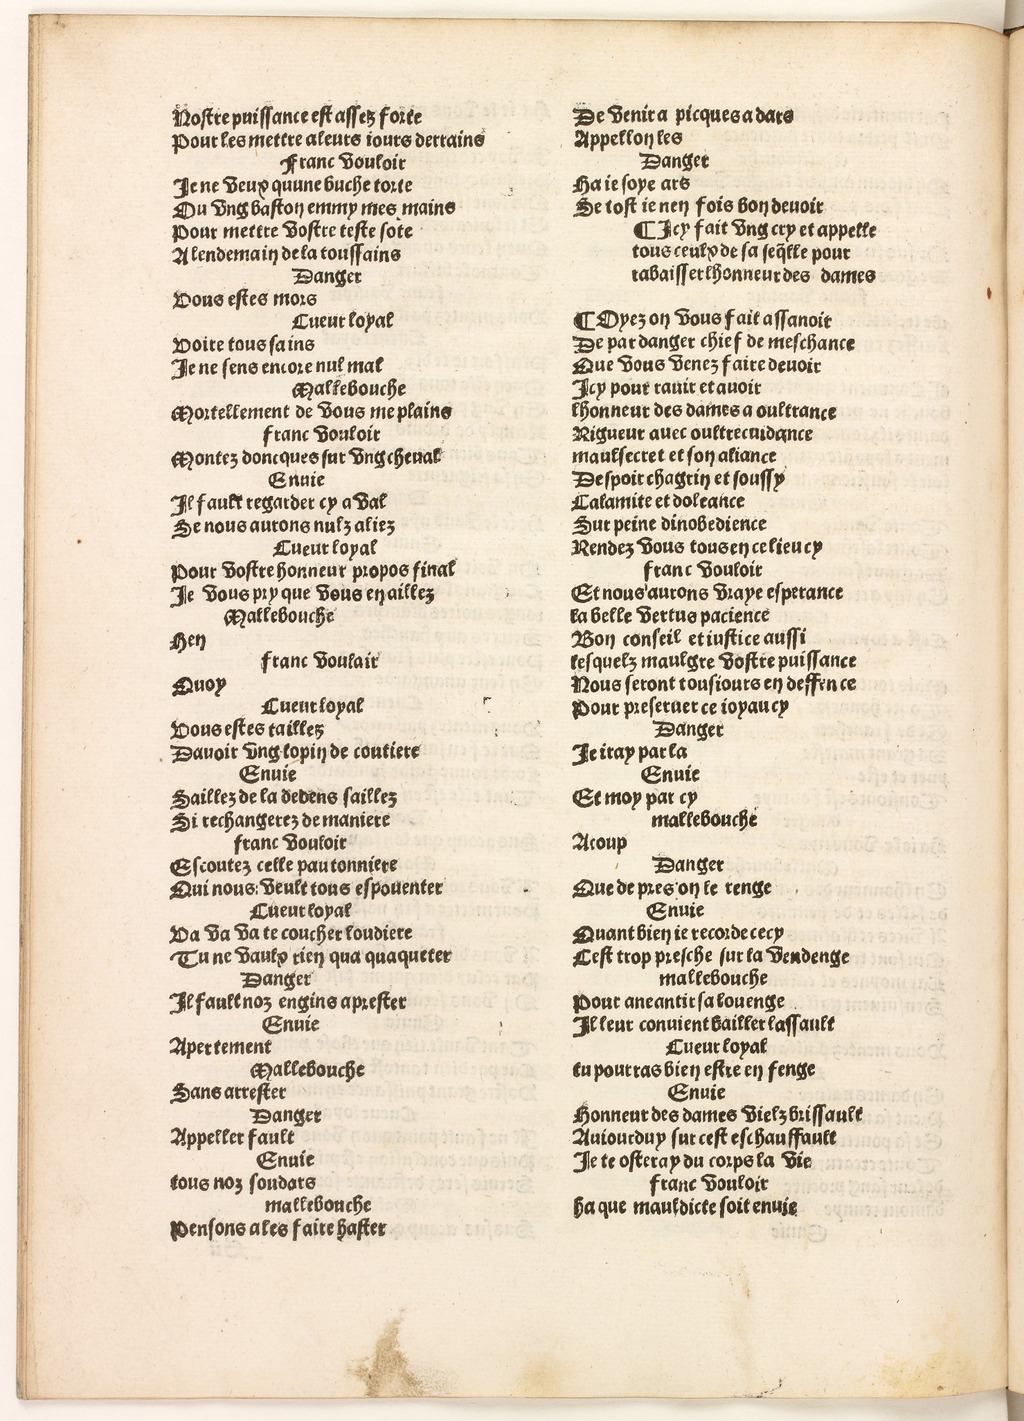 Nostre puissance est assez forte
Pour les mettre a leurs iours derrains
Franc vouloir
Je ne veux quune buche torte
Ou vng baston emmy mes mains
Pour mettre vostre teste sote
A lendemain de la toussains
Danger
Vous estes mors
Cueur loyal
Voire tous sains
Je ne sens encore nul mal
Mallebouche
Mortellement de vous me plains
franc vouloir
Montez doncques sur vng cheual
Enuie
Il fault regarder cy a val
Se nous aurons nulz aliez
Cueur loyal
Pour vostre honneur propos final
Je vous pry que vous en aillez
Mallebouche
Hen
franc voulair
Quoy
Cueur loyal
Vous estes taillez
Dauoir vng lopin de coutiere
Enuie
Saillez de la dedens saillez
Si rechangerez de maniere
franc vouloir
Escoutez celle pautonniere
Qui nous veult tous espouenter
Cueur loyal
Va va va te coucher loudiere
Tu ne vaulx rien qua quaqueter
Danger
Il fault noz engins aprester
Enuie
Apertement
Mallebouche
Sans arrester
Danger
Appeller fault
Enuie
tous noz soudars
mallebouche
Pensons a les faire haster
De venir a picques a dars
Appellon les
Danger
Ha ie soye ars
Se tost ie nen fois bon deuoir
¶ Icy fait vng cry et appelle
tous ceulx de sa seq̃lle pour
rabaisser lhonneur des dames
¶ Oyez on vous fait assauoir
De par danger chief de meschance
Que vous venez faire deuoir
Icy pour rauir et auoir
lhonneur des dames a oultrance
Rigueur auec oultrecuidance
maulsecret et son aliance
Despoir chagrin et soussy
Calamite et doleance
Sur peine dinobedience
Rendez vous tous en ce lieu cy
franc vouloir
Et nous aurons vraye esperance
la belle vertus pacience
Bon conseil et iustice aussi
lesquelz maulgre vostre puissance
Nous seront tousiours en deffence
Pour preseruer ce ioyau cy
Danger
Je iray par la
Enuie
Et moy par cy
mallebouche
Acoup
Danger
Que de pres on le renge
Enuie
Quant bien ie recorde cecy
Cest trop presche sur la vendenge
mallebouche
Pour aneantir sa louenge
Il leur conuient bailler lassault
Cueur loyal
tu pourras bien estre en fenge
Enuie
Honneur des dames vielz brissault
Auiourduy sur cest eschauffault
Je te osteray du corps la vie
franc vouloir
ha que mauldicte soit enuie